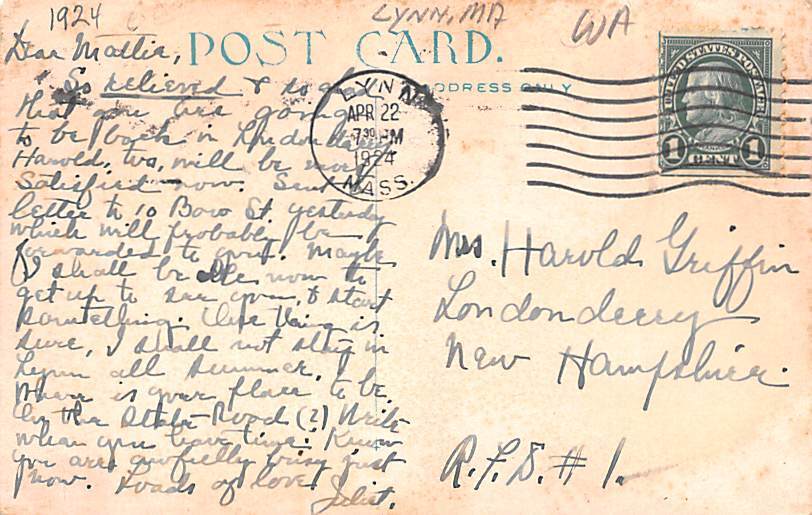 1924
LYNN, MA
WA
POST CARD.
ADDRESS ONLY
LYNN
APR 22
7 30 PM
1924
MASS.
UNITED STATES POSTAGE
1 CENT 1
Dear Mattie,
So relieved & so glad
that you are going
to be back in Londonderry
Harold, too, will be more
satisfied now. Sent
letter to 10 Bow St. yesterday
which will probably be
forwarded to you. Maybe
I shall be able now to
get up to see you, & start
something. One thing is
sure, I shall not stay in
Lynn all summer.
Where is your place to be.
On the State Road (?) Write
when you have time. Know
you are awfully busy just
now. Loads of love
Juliet.
Mrs. Harold Griffin
Londonderry
New Hampshire.
R.F.D. # 1.